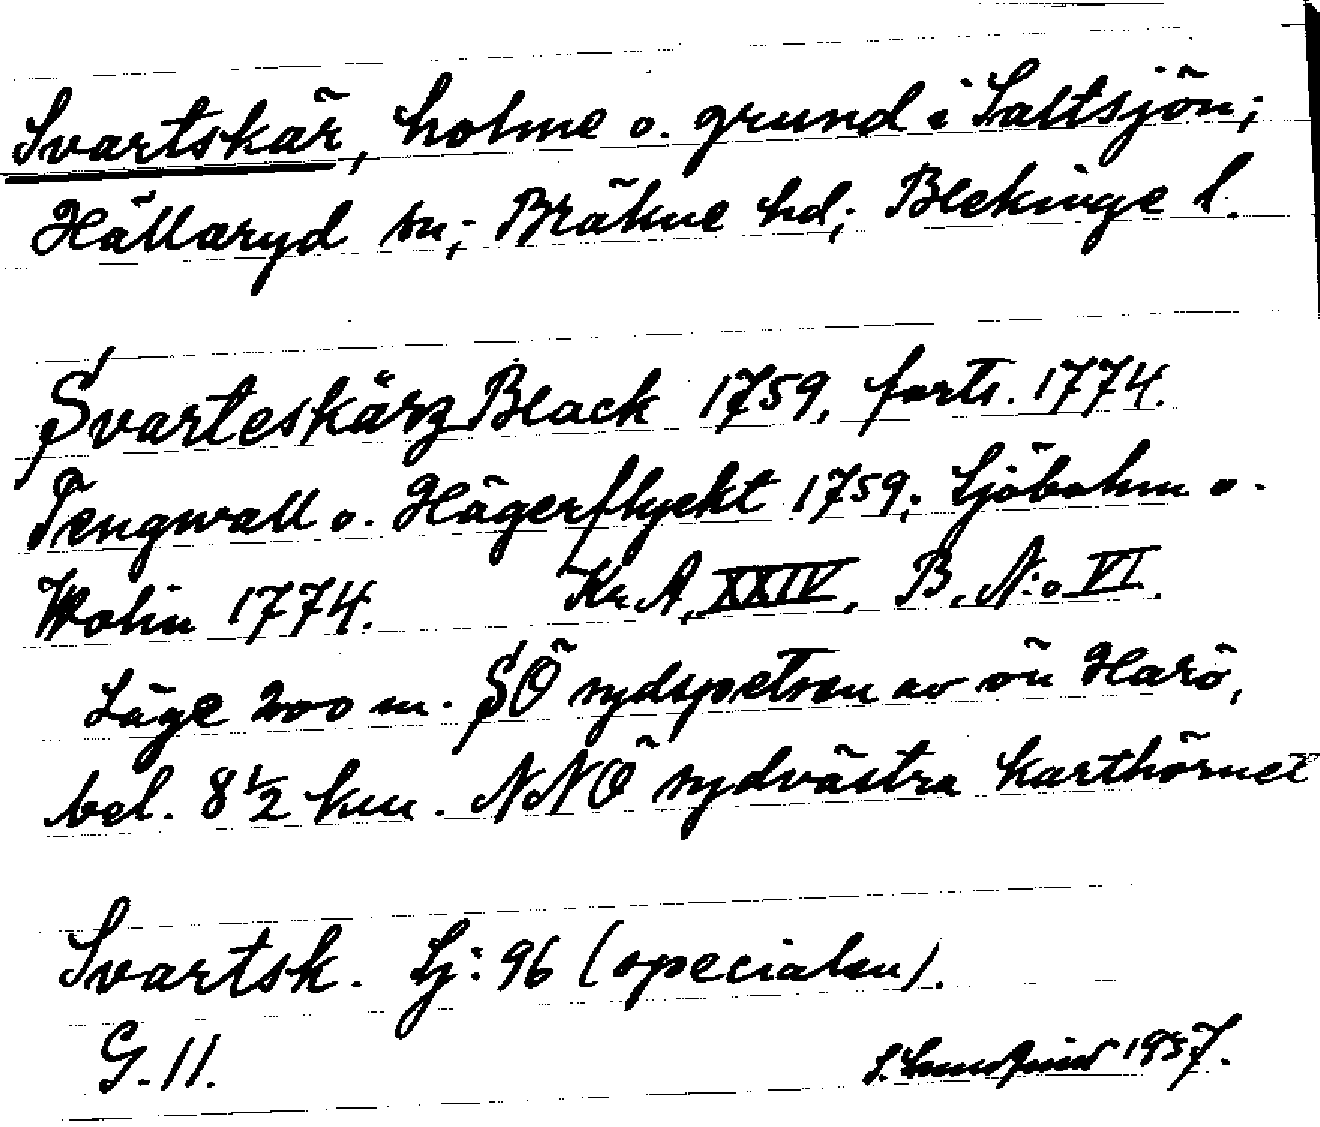 Svartskär, holme o. grund i Saltsjön;
Hällaryd sn; Bräkne hd; Blekinge l.
Svarteskärz Black 1759, forts. 1774.
Tengwall o. Hägerflyckt 1759; Sjöbohm o.
Wolin 1774. Kr. A. XXIV. B. N:o VI.
Läge 200 m. SÖ sydspetsen av ön Harö,
bel. 8 1/2 km. NNÖ sydvästra karthörnet
Svartsk. Sj: 96 (specialen).
G. 11. S. 1957.